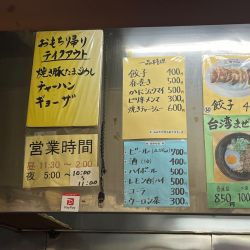 おもち帰り
テイクアウト
焼き豚たまごめし
チャーハン
ギョーザ
営業時間
昼 11:30 〜 2:00
夜 5:00 〜 10:00
11:00
PayPay
一品料理
餃子 400
春巻き 500
かにシュウマイ 500
ピリ辛メンマ 300
焼きチャーシュー 600
ビール 700
酒 400
ハイボール 500
レモンサワー 500
コーラ 300
ウーロン茶 300
餃子 4
台湾まぜ
850円